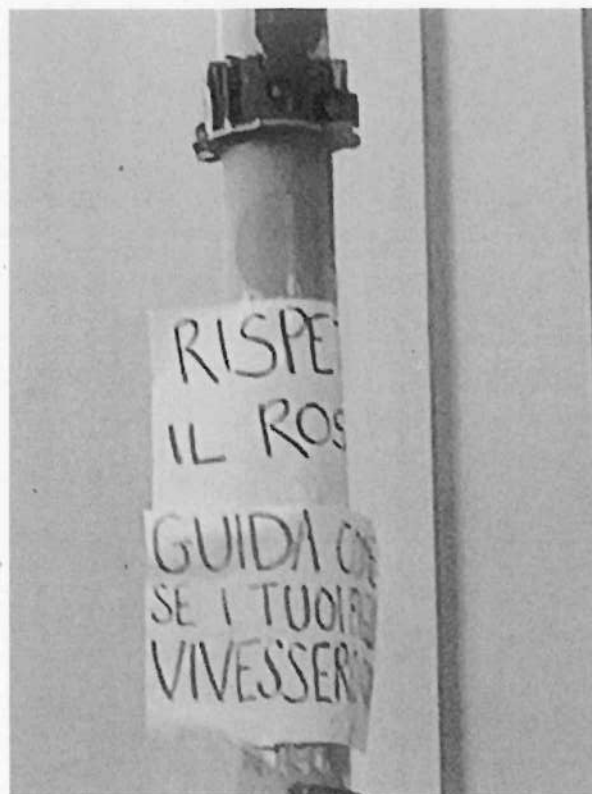 RISPE
IL ROS
GUIDA COME
SE I TUOI
VIVESSERO